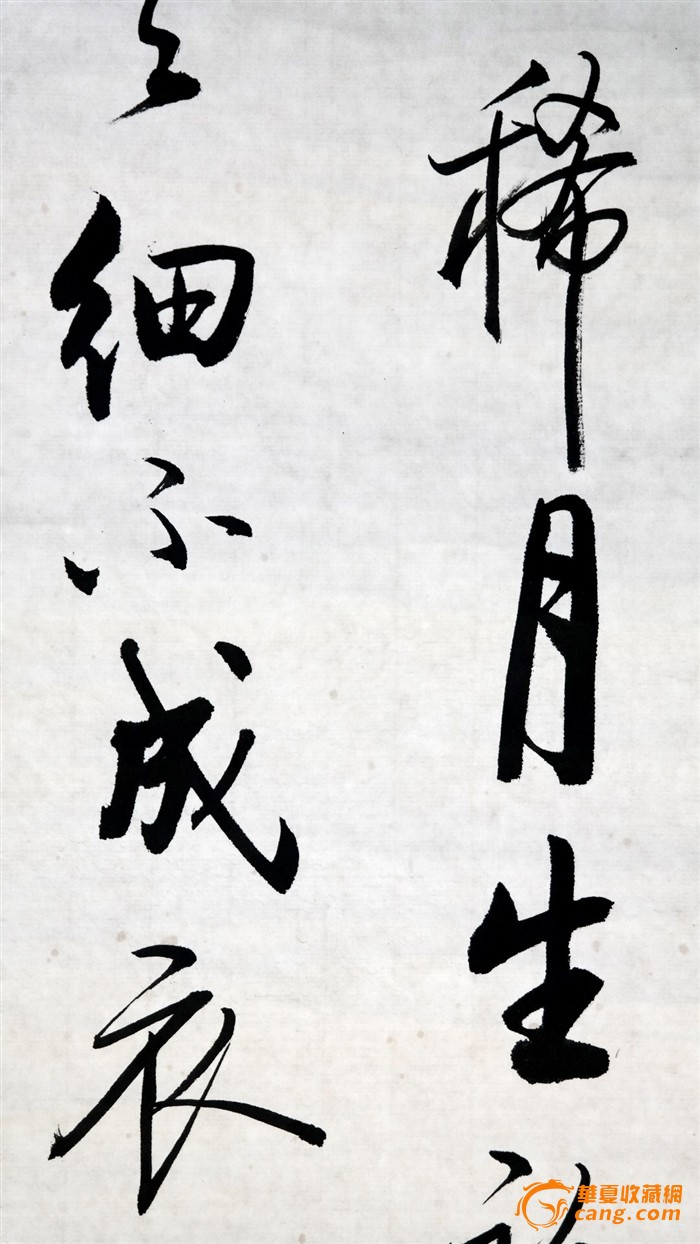 稀月生
细不成衣
華夏收藏網
cang.com